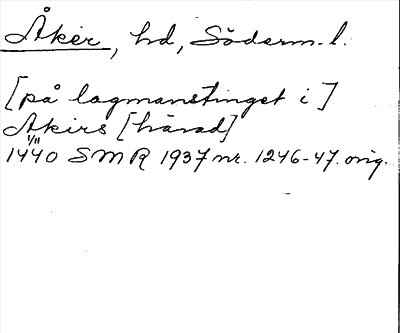 Åker, hd, Söderm. l.
[på lagmanstinget i]
Akirs [härad]
1/11
1440 SMR 1937 nr. 1246-47. orig.